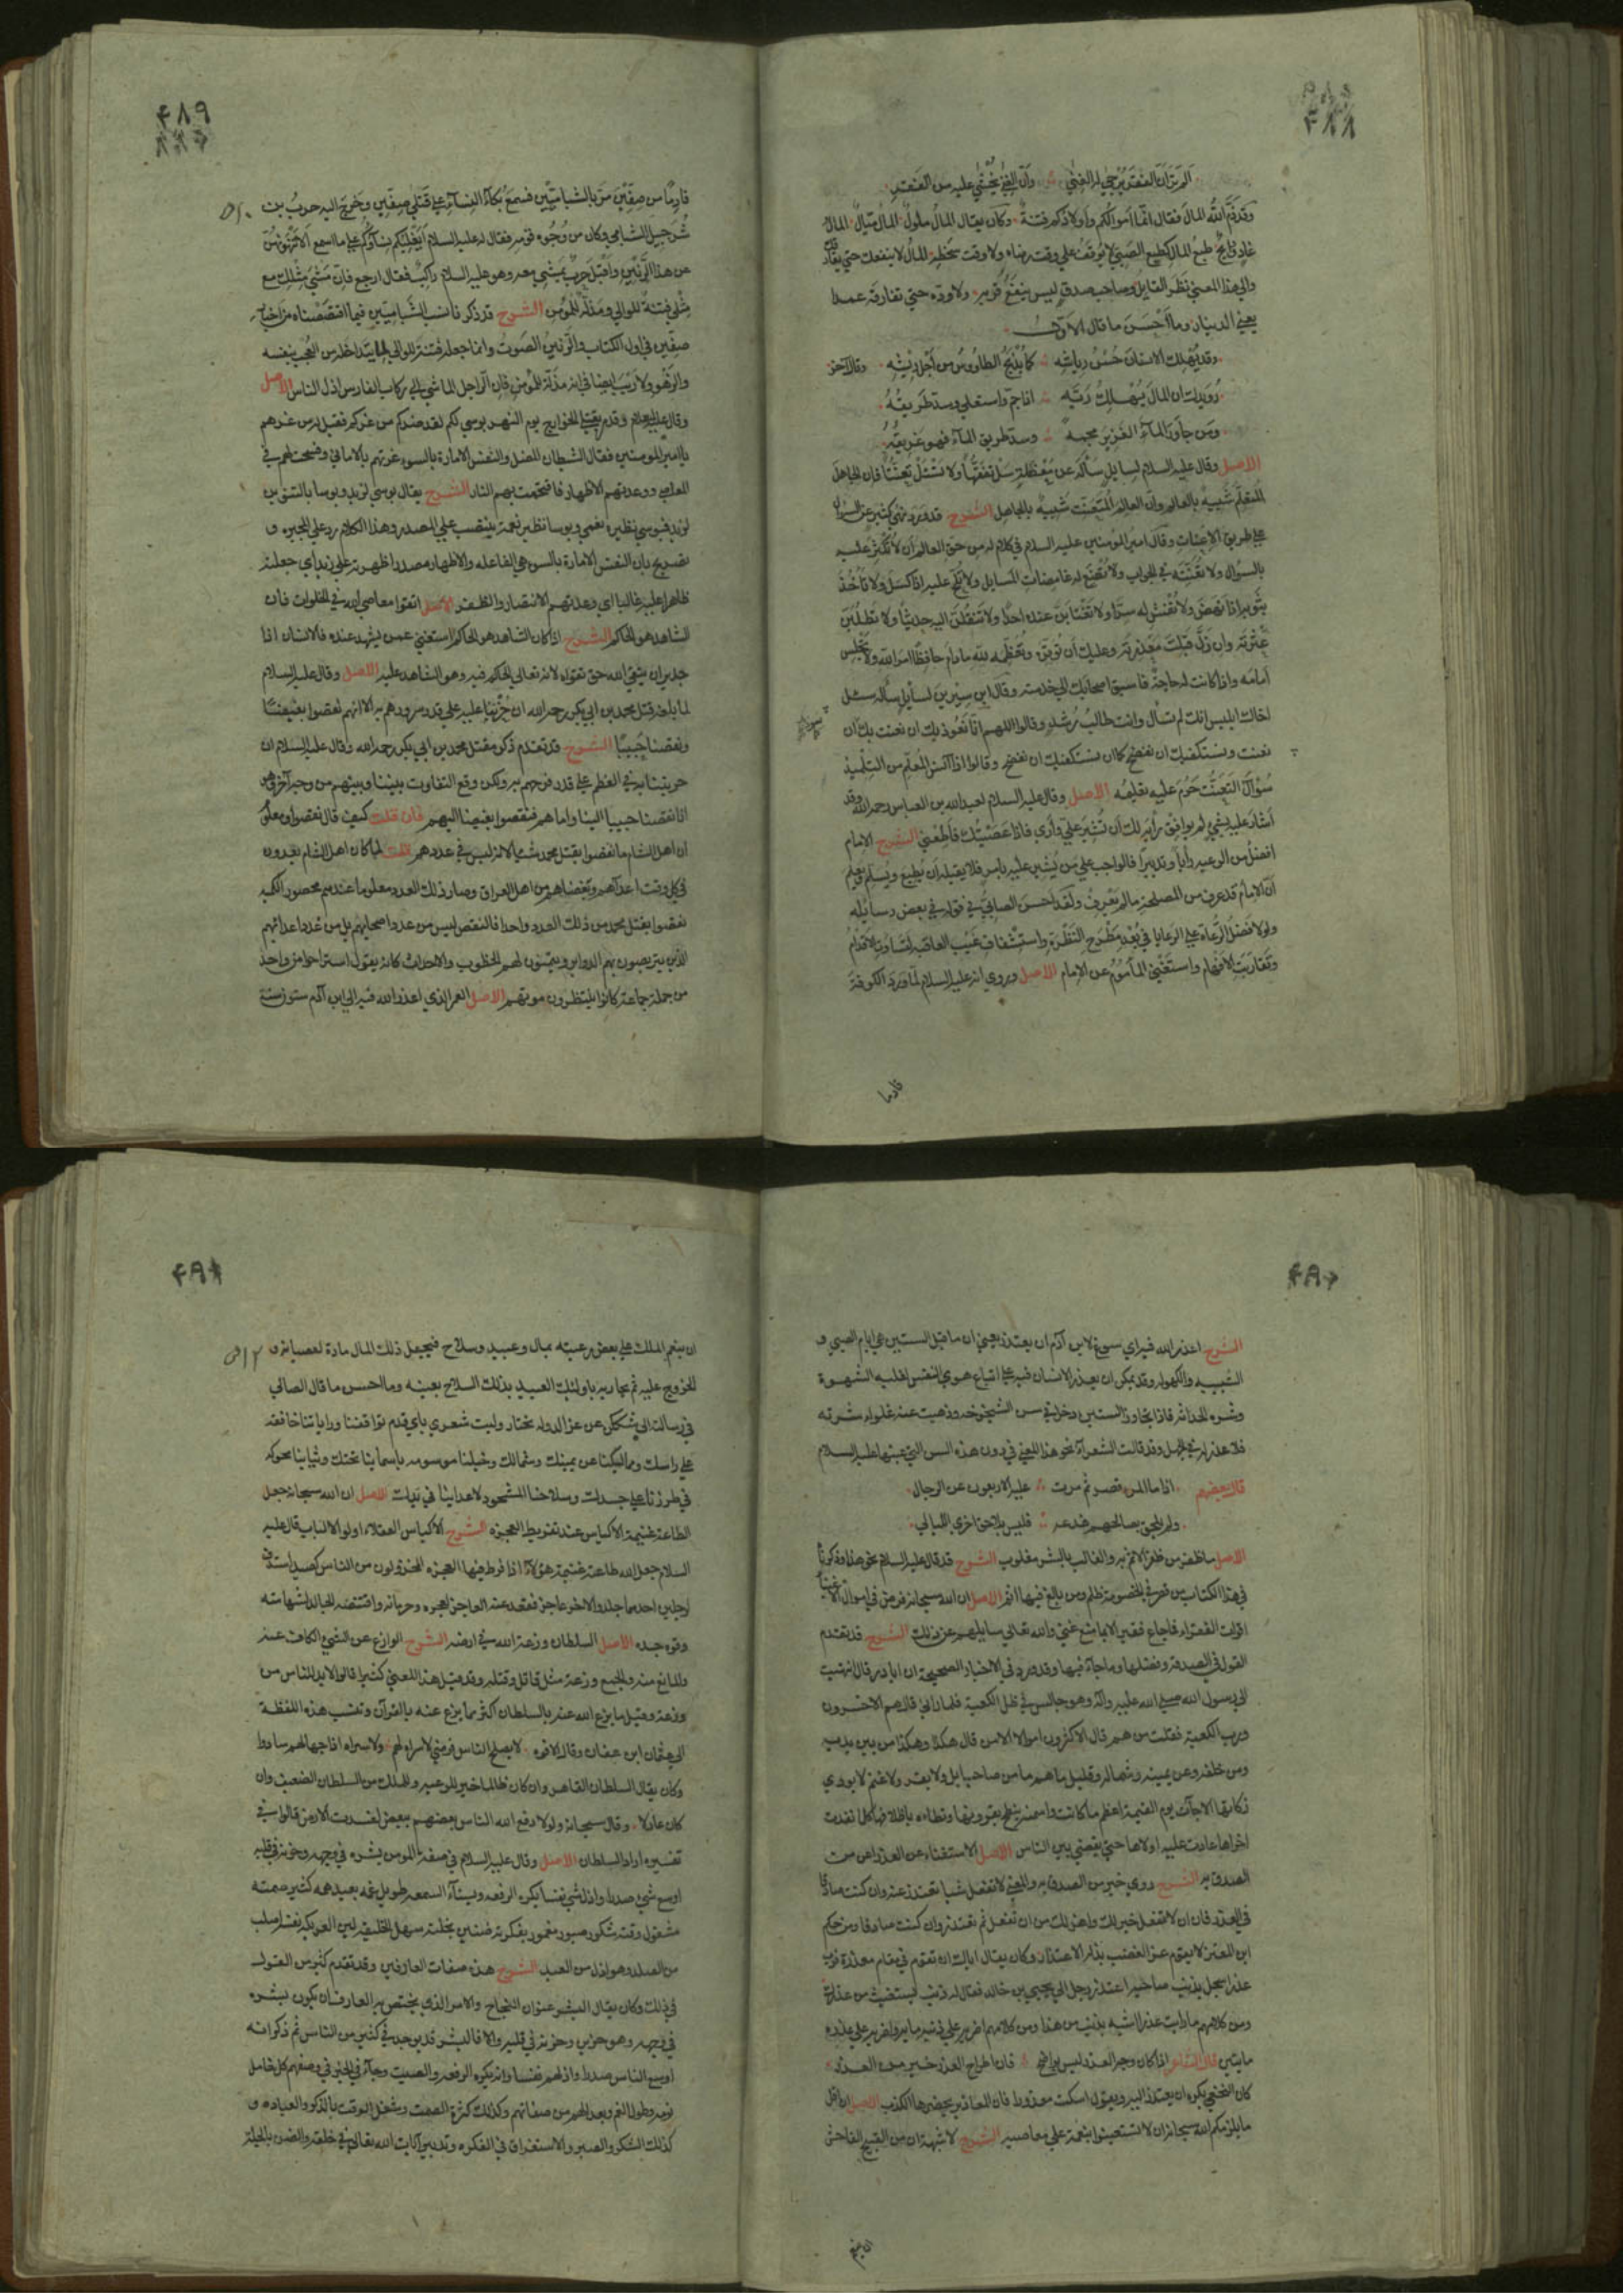 ۴۸۸
ألم تر أن الفقر يرجى له الغنى وأن الغنى يخشى عليه من الفقر
وقد ذم الله المال فقال انما اموالكم واولادكم فتنة وكان يقال المال ملول المال ميال المال
غاد ورايح طبع المال كطبع الصبي لا يوقف على وقت رضاه ولا وقت سخطه المال لا ينفعك حتى يفارقك
والى هذا المعنى نظر القايل وصاحب صدق ليس ينفع قربه ولا وده حتى تفارقه عمدا
يعني الدينار وما أحسن ما قال الاول
وقد يهلك الانسان حسن رياشه كما يذبح الطاووس من أجل ريشه وقال آخر
رويدك ان المال يهلك ربه اذا جم واستعلى وسد طريقه
ومن جاوز الماء الغزير مجمه وسد طريق الماء فهو غريقه
الاصل وقال عليه السلام لسايل سأله عن معضلة سل تفقها ولا تسئل تعنتا فان الجاهل
المتعلم شبيه بالعالم وان العالم المتعنت شبيه بالجاهل الشرح قد ورد نهي كثير عن السؤال
على طريق الاعنات وقال امير المؤمنين عليه السلام في كلام له من حق العالم أن لا تكثر عليه
بالسؤال ولا تعنته في الجواب ولا تضع له غامضات المسايل ولا تلح عليه اذا كسل ولا تأخذ
بثوبه اذا نهض ولا تفش له سرا ولا تغتابن عنده احدا ولا تنقلن اليه حديثا ولا تطلبن
عثرته وان زل قبلت معذرته وعليك أن توقره وتعظمه لله مادام حافظا امر الله ولا تجلس
أمامه واذا كانت له حاجة فاسبق اصحابك الى خدمته وقال ابن سيرين لسايل سأله سل
اخاك ابليس انك لم تسأل وانت طالب رشد وقالوا اللهم انا نعوذ بك ان نعنت بك ان
نعنت ونستكفيك ان تفضح كما ان نستكفيك ان نفتضح وقالوا اذا آنس المعلم من التلميذ
سؤال التعنت حرم عليه تعليمه الاصل وقال عليه السلام لعبد الله بن العباس رحمه الله وقد
أشار عليه بشي لم يوافق رأيه لك أن تشير علي وأرى فاذا عصيتك فأطعني الشرح الامام
افضل من الرعيه رأيا وتدبيرا فالواجب على من يشير عليه بامر فلا يقبله أن يطيع ويسلم ويعلم
أن الامام قد عرف من المصلحة ما لم يعرف ولقد احسن الصابي في قوله في بعض رسايله
ولولا فضل الرعاة على الرعايا في بعد مطرح النظرة واستشفاف غيب العاقبة لتساوت الاقدام
وتقاربت الافهام واستغنى المأموم عن الامام الاصل وروي انه عليه السلام لما ورد الكوفة
قادما
۴۸۹
قادما من صفين مر بالشباميين فسمع بكاء النساء على قتلى صفين وخرج اليه حرب بن
شرحبيل الشبامي وكان من وجوه قومه فقال له عليه السلام أيغلبكم نساؤكم على ما اسمع الا تنهونهن
عن هذا الرنين واقبل حرب يمشي معه وهو عليه السلام راكب فقال ارجع فان مشي مثلك مع
مثلي فتنة للوالي ومذلة للمؤمن الشرح قد ذكرنا نسب الشباميين فيما اقتصصناه من اخبار
صفين في اول الكتاب والرنين الصوت وانما جعله فتنة للوالي لما يتداخله من العجب بنفسه
والزهو ولا ريب ايضا في انه مذلة للمؤمن فان الرجل الماشي الى ركاب الفارس اذل الناس الاصل
وقال عليه السلام وقد مر بقتلى الخوارج يوم النهر بوسى لكم لقد ضركم من غركم فقيل له من غرهم
يا امير المؤمنين فقال الشيطان المضل والنفس الامارة بالسوء غرتهم بالاماني وفسحت لهم في
المعاصي ووعدتهم الاظهار فاقتحمت بهم النار الشرح يقال بوسى لزيد وبوسا بالتنوين
لزيد فبوسى نظيره نعمى وبوسا نظيره نعمة ينتصب على المصدر وهذا الكلام رد على المجبره و
تصريح بان النفس الامارة بالسوء هي الفاعله والاظهار مصدر اظهرته على زيد أي جعلته
ظاهرا عليه غالبا اى وعدتهم الانتصار والظفر الاصل اتقوا معاصي الله في الخلوات فان
الشاهد هو الحاكم الشرح اذا كان الشاهد هو الحاكم استغنى عمن يشهد عنده فالانسان اذا
جدير ان يتقي الله حق تقواه لانه تعالى الحاكم فيه وهو الشاهد عليه الاصل وقال عليه السلام
لما بلغه قتل محمد بن ابي بكر رحمه الله ان حزننا عليه على قدر سرورهم به الا انهم نقصوا بغيضا
ونقصنا حبيبا الشرح قد تقدم ذكر مقتل محمد بن ابي بكر رحمه الله وقال عليه السلام ان
حزننا به في العظم على قدر فرحهم به ولكن وقع التفاوت بيننا وبينهم من وجه آخر وهو
انا نقصنا حبيبا الينا واما هم فنقصوا بغيضا اليهم فان قلت كيف قال نقصوا ومعلوم
ان اهل الشام ما نقصوا بقتل محمد شيأ لانه ليس في عددهم قلت لما كان اهل الشام يعدون
في كل وقت اعدآهم وبغضاهم من اهل العراق وصار ذلك العدد معلوما عندهم محصور الكمية
نقصوا بقتل محمد من ذلك العدد واحدا فالنقص ليس من عدد اصحابهم بل من عدد اعدائهم
الذين يتربصون بهم الدواير ويتمنون لهم الخطوب والاحداث كانه يقول استراحوا من واحد
من جملة جماعة كانوا ينتظرون موتهم الاصل العمر الذي اعذر الله فيه الى ابن آدم ستون سنة
الشرح اعذر الله فيه اي سوغ لابن آدم ان يعتذر يعني ان ما قبل الستين هي ايام الصبى و
الشبيبه والكهوله وقد يمكن ان يعذر الانسان فيه على اتباع هوى النفس لغلبه الشهوة
وشره الحداثه فاذا تجاوز الستين دخل في سن الشيخوخه وذهبت عنه غلواء شرته
فلا عذر له في الجهل وقد قالت الشعراء نحو هذا المعنى في دون هذه السن التي عينها عليه السلام
قال بعضهم اذا ما المرء قصر ثم مرت عليه الاربعون عن الرجال
ولم يلحق بصالحهم فدعه فليس بلاحق اخرى الليالي
الاصل ما ظفر من ظفر الاثم به والغالب بالشر مغلوب الشرح قد قال عليه السلام نحو هذا وذكرناه
في هذا الكتاب من قصر في الخصومة ظلم ومن بالغ فيها اثم الاصل ان الله سبحانه فرض في اموال الاغنياء
اقوات الفقراء فما جاع فقير الا بما منع غني والله تعالى سايلهم عن ذلك الشرح قد تقدم
القول في الصدقة وفضلها وما جاء فيها وقد ورد في الاخبار الصحيحة ان اباذر قال انتهيت
الى رسول الله صلى الله عليه وآله وهو جالس في ظل الكعبة فلما رآني قال هم الاخسرون
ورب الكعبة فقلت من هم قال الاكثرون اموالا الا من قال هكذا وهكذا من بين يديه
ومن خلفه وعن يمينه وشماله وقليل ما هم ما من صاحب ابل ولا بقر ولا غنم لا يودي
زكاتها الا جآت يوم القيمة اعظم ما كانت واسمنه تنطحه بقرونها وتطأه باظلافها كلما نفدت
اخراها عادت عليه اولاها حتى يقضى بين الناس الاصل الاستغناء عن العذر اعز من
الصدق به الشرح روي خير من الصدق به والمعنى لا تفعل شيأ تعتذر عنه وان كنت صادقا
في العذر فان لا تفعل خير لك واعز لك من ان تفعل ثم تعتذر وان كنت صادقا ومن حكم
ابن المعتز لا يقوم عز الغضب بذل الاعتذار وكان يقال اياك ان تقوم في مقام معذرة فرب
عذر اسجل بذنب صاحبه اعتذر رجل الى يحيى بن خالد فقال له ذنبك يستغيث من عذرك
ومن كلامهم ما رايت عذرا اشبه بذنب من هذا ومن كلامهم
قال الشاعر اذا كان وجه العذر ليس بواضح فان اطراح العذر خير من العذر
كان النخعي يكره ان يعتذر اليه ويقول اسكت معذورا فان المعاذير يحضرها الكذب الاصل ان اقل
ما يلزمكم لله سبحانه ان لا تستعينوا بنعمه على معاصيه الشرح لا شبهة ان من القبيح الفاحش
ان ينعم
ان ينعم الملك على بعض رعيته بمال وعبيد وسلاح فيجعل ذلك المال مادة لعصيانه و
الخروج عليه ثم يحاربه باولئك العبيد بذلك السلاح بعينه وما احسن ما قال الصابي
في رسالته الى سبكتكين عن عز الدوله بختيار وليت شعري باي قدم تواقفنا وراياتنا خافقه
على راسك ومماليكنا عن يمينك وشمالك وخيلنا موسومه باسمآينا تحتك وثيابنا محوكه
في طرزنا على جسدك وسلاحنا المشحوذ لاعدآينا في يدك الاصل ان الله سبحانه جعل
الطاعة غنيمة الاكياس عند تفريط العجزه الشرح الاكياس العقلاء اولوا الالباب قال عليه
السلام جعل الله طاعته غنيمة هؤلاء اذا فرط فيها العجزه المخذولون من الناس كصيد استذف
لرجلين احدهما جلد والاخر عاجز فقعد عنه العاجز لعجزه وحرمانه واقتنصه الجلد لشهامته
وقوة جده الاصل السلطان وزعة الله في ارضه الشرح الوازع عن الشي الكاف عنه
والمانع منه والجمع وزعة مثل قاتل وقتله وقد قيل هذا المعنى كثيرا قالوا لا بد للناس من
وزعة وقيل ما يزع الله عنه بالسلطان اكثر مما يزع عنه بالقرآن وتنسب هذه اللفظة
الى عثمان ابن عفان وقال الافوه لا يصلح الناس فوضى لا سراة لهم ولا سراة اذا جهالهم سادوا
وكان يقال السلطان القاهر وان كان ظالما خير للرعيه وللملك من السلطان الضعيف وان
كان عادلا وقال سبحانه ولولا دفع الله الناس بعضهم ببعض لفسدت الارض قالوا في
تفسيره اراد السلطان الاصل وقال عليه السلام في صفة المومن بشره في وجهه وحزنه في قلبه
اوسع شي صدرا واذل شي نفسا يكره الرفعه ويشنأ السمعه طويل غمه بعيد همه كثير صمته
مشغول وقته شكور صبور مغمور بفكرته ضنين بخلته سهل الخليقه لين العريكه نفسه اصلب
من الصلد وهو اذل من العبد الشرح هذه صفات العارفين وقد تقدم كثير من القول
في ذلك وكان يقال البشر عنوان النجاح والامر الذي يختص به العارف ان يكون بشره
في وجهه وهو حزين وحزنه في قلبه والا فالبشر قد يوجد في كثير من الناس ثم ذكر انه
اوسع الناس صدرا واذلهم نفسا وانه يكره الرفعه والصيت وجآء في الخبر في وصفهم كل خامل
نومه وطول الغم وبعد الهم من صفاتهم وكذلك كثرة الصمت وشغل الوقت بالذكر والعباده و
كذلك الشكر والصبر والاستغراق في الفكره وتدبر آيات الله تعالى في خلقه والضن بالخلة